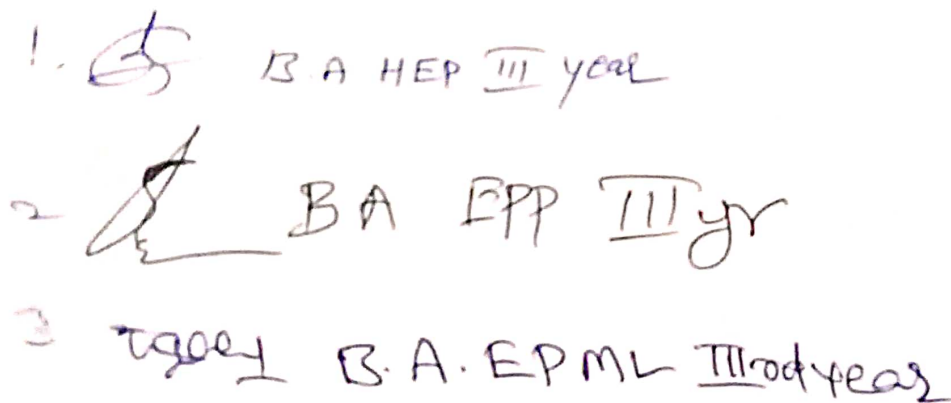 1. B.A HEP III year
2 BA EPP III yr
3 B.A. EPML IIIrd year